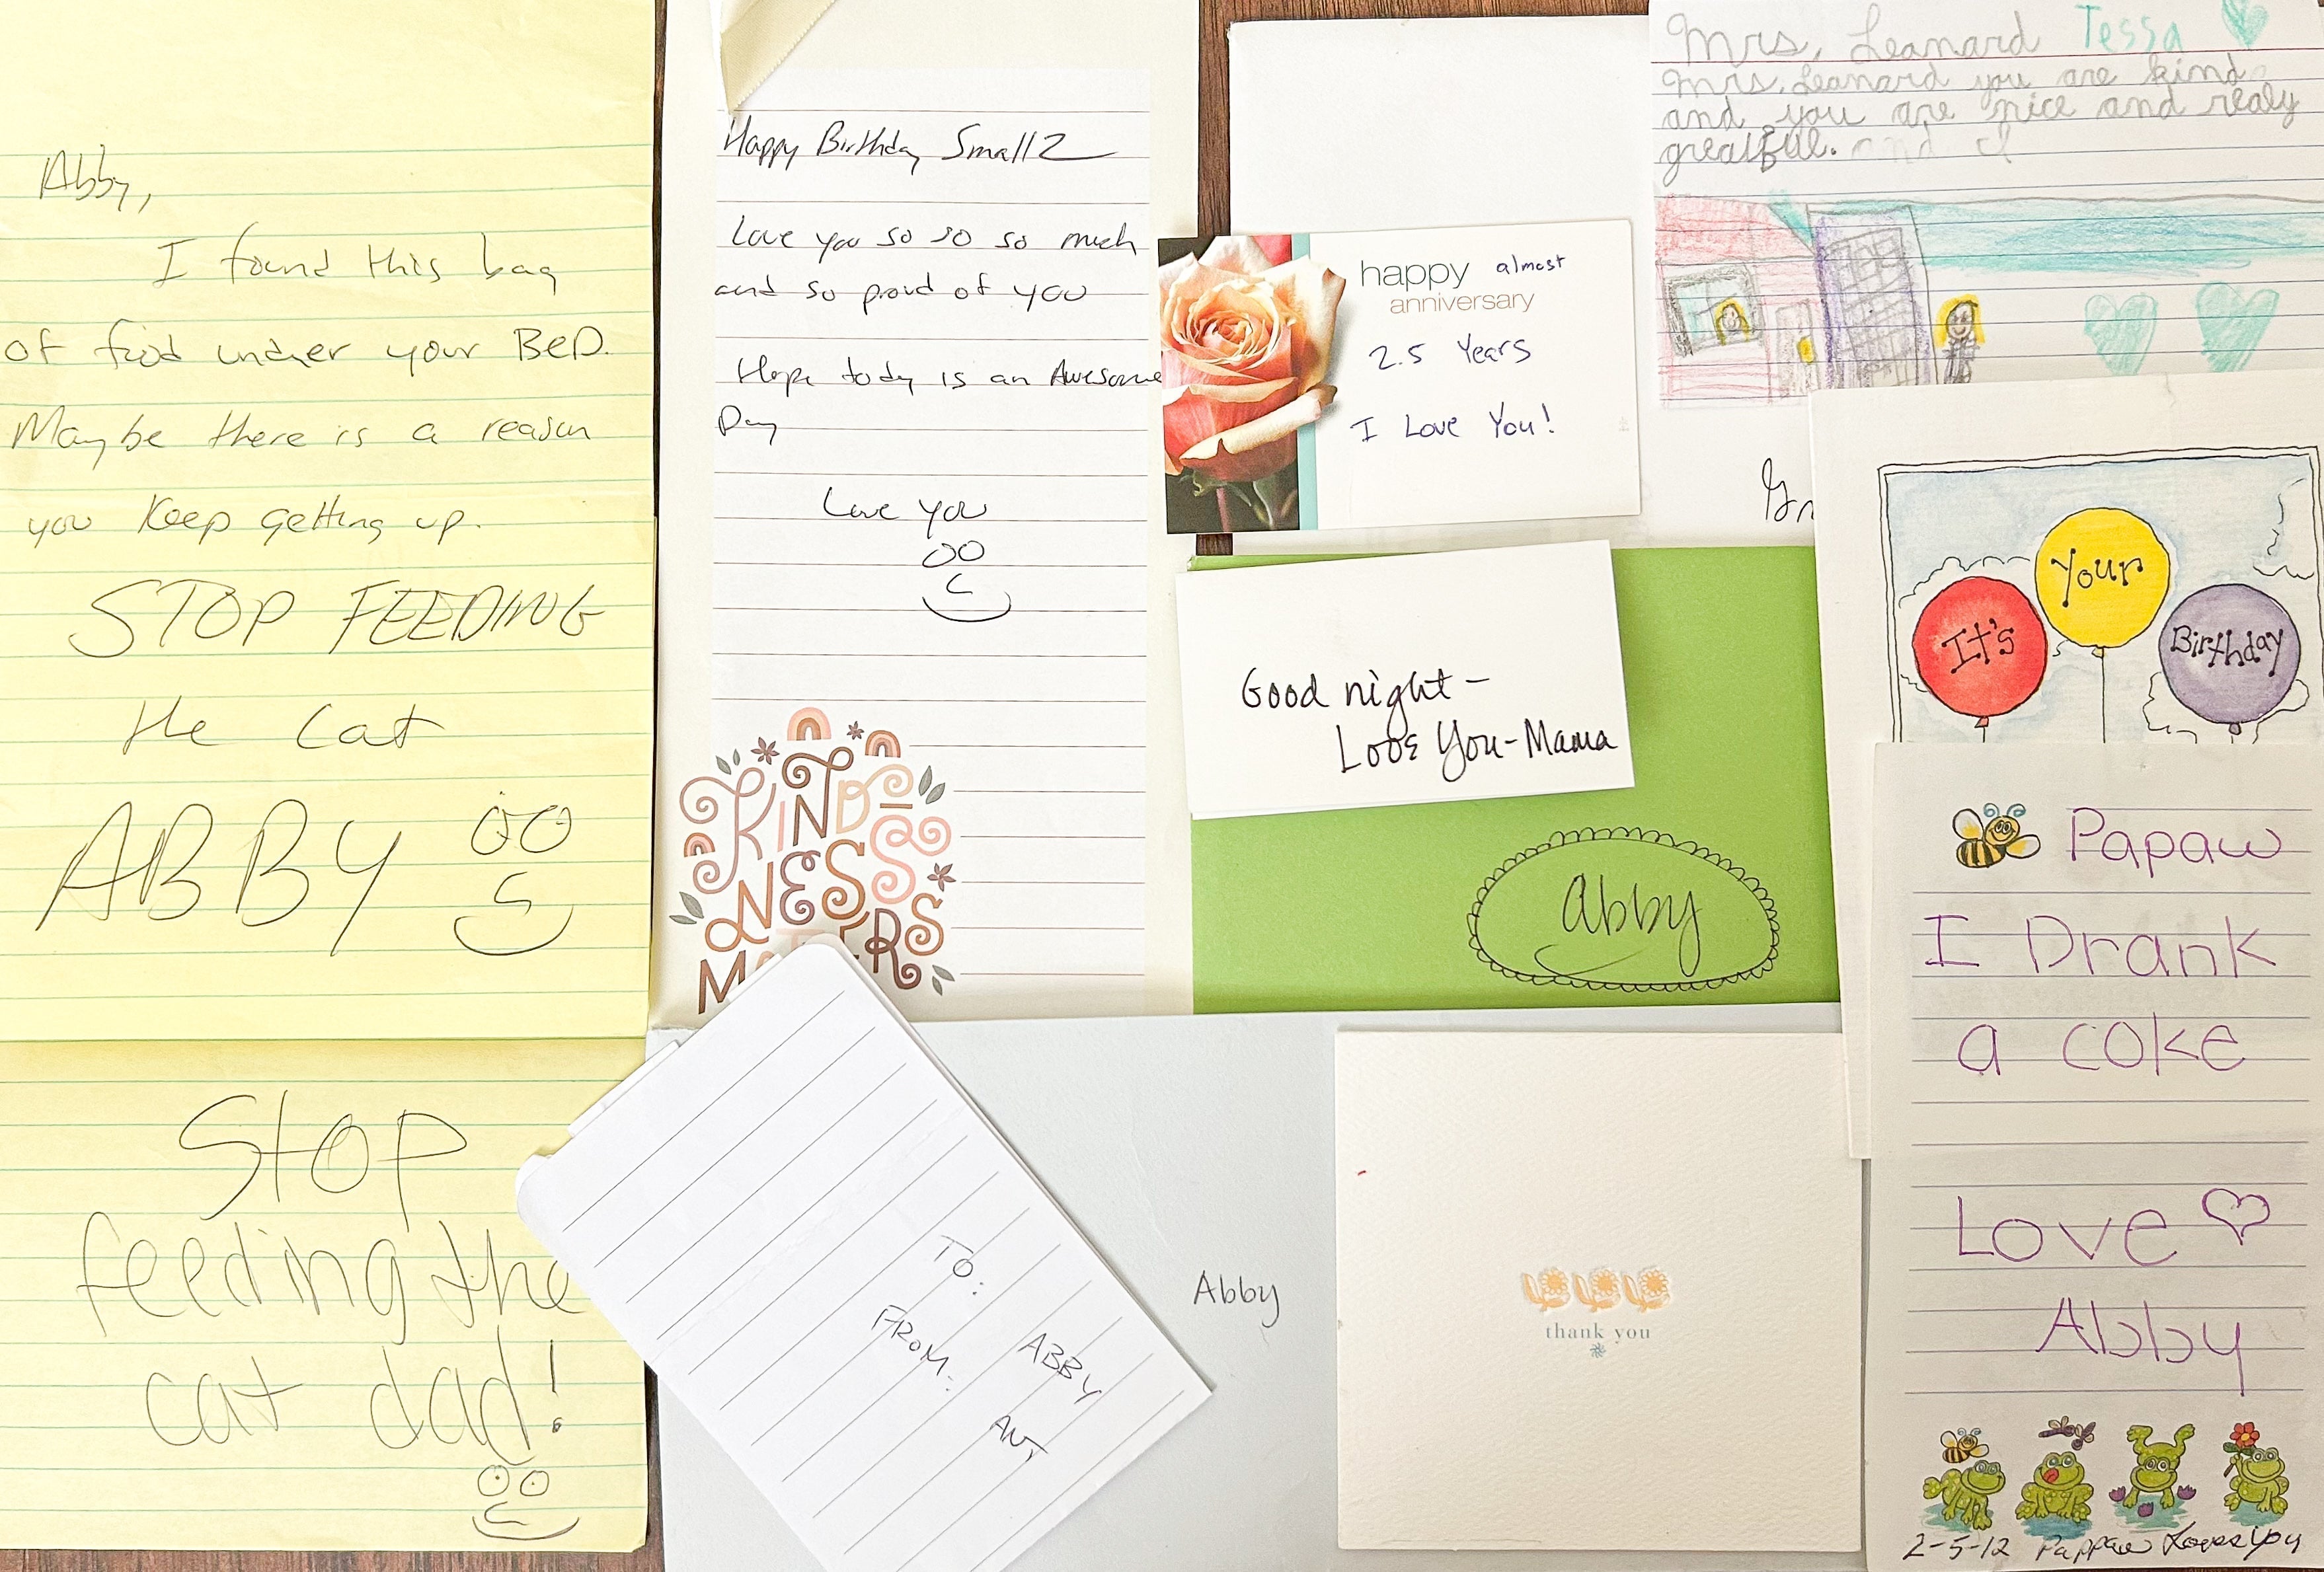 Abby,
I found this bag
of food under your BeD.
Maybe there is a reason
you Keep getting up.
STOP FEEDING
the Cat
ABBY
Stop
feeding the
cat dad!
Happy Birthday Small2
Love you so so so much
and so proud of you
Hope today is an Awesome
Day
Love you
KIND-
NESS
MATTERS
TO: ABBY
FROM: ANT
happy almost
anniversary
2.5 Years
I Love You!
Good night-
Love You-Mama
abby
Abby
thank you
Mrs. Leanard Tessa
Mrs. Leanard you are kind
and you are nice and realy
greatful. and I
Gr
It's
Your
Birthday
Papaw
I Drank
a coke
Love
Abby
2-5-12 Pappaw Loves you